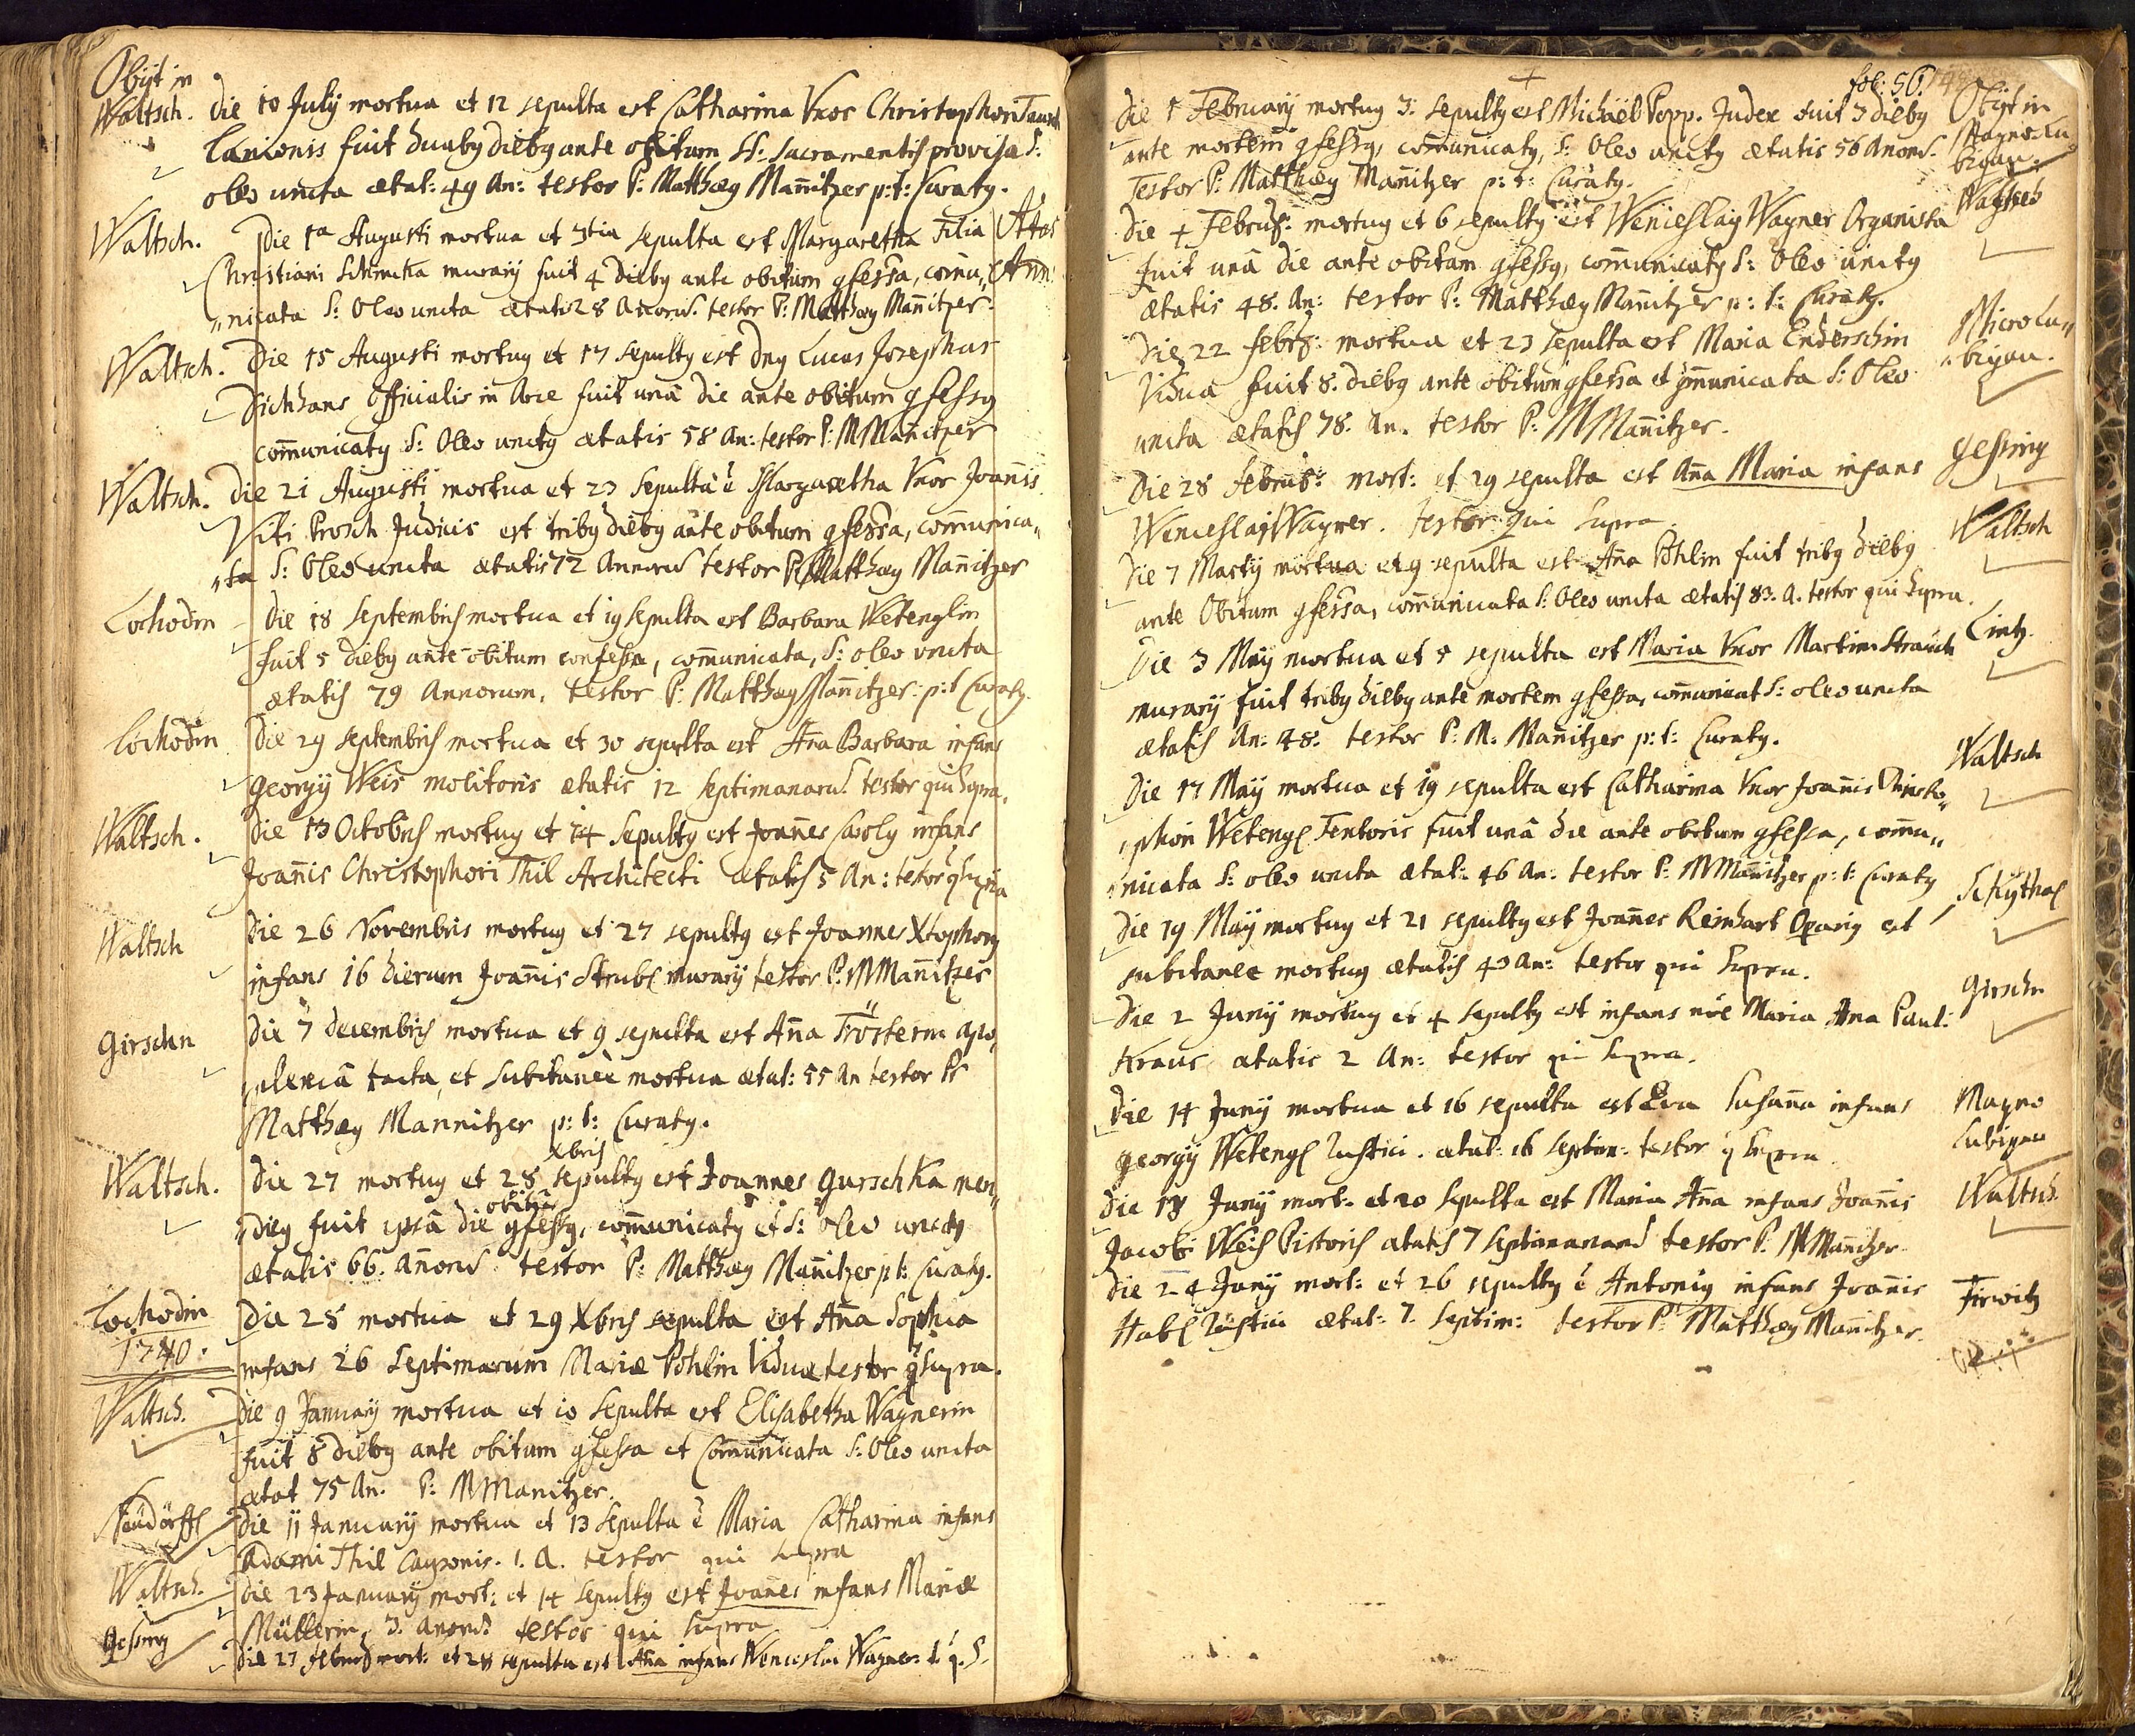 Obijt in
Waltsch. Die 10 July mortua et 12 sepulta est Catharina Vxor Christophori
Lanionis fuit duabꝫ diebꝫ ante obitum SS: Sacramentis provisa S:
oleo uncta ætat: 49 An: testor P: Matthæꝫ Mañitzer p: t: Curatꝫ.
Waltsch. Die 1a Augusti mortua et 3tia sepulta est Margaretha Filia
Christiani Schmika murarij fuit 4 diebꝫ ante obitum gfessa, comu„
„nicata S: Oleo uncta ætatis 28 Añorũ. testor P: Matthæꝫ Mañitzer.
Waltsch. Die 15 Augusti mortuꝫ et 17 sepultꝫ est Dnꝫ Lucas Josephus
Dichhans Officialis in Arce fuit unâ die ante obitum gfessꝫ
com̃unicatꝫ S: Oleo unctꝫ ætatis 58 An: testor P: M Mañitzer
Waltsch. Die 21 Augusti mortua et 23 sepulta ẽ Margaretha Vxor Joañis
Viti Prosch Judicis est tribꝫ diebꝫ ante obitum gfessa, com̃unica„
„ta S: Oleo uncta ætatis 72 Annorũ testor P. Matthæꝫ Mañitzer
Lochodin Die 18 Septembris mortua et 19 sepulta est Barbara Wetenglin
fuit 5 diebꝫ ante obitum confessa, com̃unicata, S: oleo uncta
ætatis 79 Annorum. testor P: Matthæꝫ Mañitzer p: t Curatꝫ.
Lochodin Die 29 septembris mortua et 30 sepulta est Añа Barbara infans
Georgij Weis molitoris ætatis 12 septimanarũ. testor qui supra.
Waltsch. Die 13 Octobris mortuꝫ et 14 sepultꝫ est Joañes Carolꝫ infans
Joañis Christophori Thil Architecti ætatis 5 An: testor q supra
Waltsch Die 26 Novembris mortuꝫ et 27 sepultꝫ est Joannes Xtophorꝫ
infans 16 dierum Joañis Strubl murarij testor P. M Mañitzer
Girschn Die 7 decembris mortua et 9 sepulta est Añа Trösterin apo„
„plexiâ tacta, et subitanèe mortua ætat: 55 An testor P:
Matthæꝫ Mannitzer p: t: Curatꝫ.
Xbris
Waltsch. Die 27 mortuꝫ et 28 sepultꝫ est Joannes Gurschka men„
obitus
„dicꝫ fuit ipsâ die gfessꝫ, com̃unicatꝫ et S: oleo unctꝫ
ætatis 66. Añorũ testor P: Matthæꝫ Mañitzer p t: Curatꝫ.
Lochodin Die 28 mortua et 29 Xbris sepulta est Añа Sophia
1740. infans 26 Septimarum Mariæ Pohlin Viduæ testor q supra.
Waltsch. Die 9 January mortua et 10 sepulta est Elisabetha Wagnerin
fuit 8 diebꝫ ante obitum gfessa et Com̃unicata S: Oleo uncta
ætat 75 An. P: M Manitzer.
Neüdörffl Die 11 January mortua et 13 sepulta ẽ Maria Catharina infans
Adami Thil Cauponis. 1. A. testor qui supra
Waltsch. Die 23 January mort: et 14 sepultꝫ est Joañes infans Mariæ
Müllerin, 3. Anorũ testor qui supra
Gessing Die 27 februar mort: et 28 sepulta est Añа infans Wenceslai Wagner. t. q. S.
fol: 56.
Die 1 February mortuꝫ 3: sepultꝫ est Michäel Popp. Judex fuit 3 diebꝫ Obijt in
ante mortem gfessꝫ, com̃unicatꝫ, S: Oleo unctꝫ ætatis 56 Anorũ. Magno Lu„
Testor P: Matthæꝫ Mañitzer p: t: Curatꝫ. bigau.
Die 4 Februar: mortuꝫ et 6 sepultꝫ est Wenceslaꝫ Wagner Organista Waltsch
fuit unâ die ante obitum gfessꝫ, com̃unicatꝫ S: Oleo unctꝫ
ætatis 48. An: testor P: Matthæꝫ Mañitzer p: t: Curatꝫ.
Die 22 febr: mortua et 23 sepulta est Maria Enderschin Micro Lu„
Vidua fuit 8. diebꝫ ante obitum gfessa et gmunicata S: Oleo „bigau.
uncta ætatis 78. An. testor P: M Mañitzer.
Die 28 februar: mort: et 29 sepulta est Añа Maria infans Gessing
Wenceslai Wagner. testor qui supra.
Die 7 Martij mortua et 9 sepulta est Añа Pohlin fuit tribꝫ diebꝫ Waltsch
ante Obitum gfessa, com̃unicata S: Oleo uncta ætatis 83. A. testor qui supra.
Die 3 Maij mortua et 5 sepulta est Maria Vxor Martini Strauch Lintz.
murarij fuit tribꝫ diebꝫ ante mortem gfessa, com̃unicat S: oleo uncta
ætatis An: 48. testor P: M: Mañitzer p: t: Curatꝫ.
Die 17 Maij mortua et 19 sepulta est Catharina Vxor Joañis Christo„ Waltsch
„phori Wetengl Textoris fuit unâ die ante obitum gfessa, com̃u„
„nicata S: oleo uncta ætat: 46 An: testor P: M Mañitzer p: t: Curatꝫ
Die 19 Maij mortuꝫ et 21 sepultꝫ est Joañes Reinhart Operariꝫ est
subitanee mortuꝫ ætatis 40 An: testor qui supra.
Die 2 Junij mortuꝫ et 4 sepultꝫ est infans nõe Maria Ana Pauli Girschn
Kraus ætatis 2 An: testor qui supra.
Die 14 Junij mortua et 16 sepulta est Eva Susaña infans Magno
Georgij Wetengl rustici. ætat: 16 septim: testor q supra Lubigau
Die 18 Junij mort: et 20 sepulta est Maria Añа infans Joañis Waltsch.
Jacobi Weis Pistoris ætatis 7 septimanarũ testor P. M Mañitzer
Die 24 Junij mort: et 26 sepultꝫ ẽ Antoniꝫ infans Joañis Tirwitz
Habl rustici ætat: 7. Septim: testor P: Matthæꝫ Mañitzer.